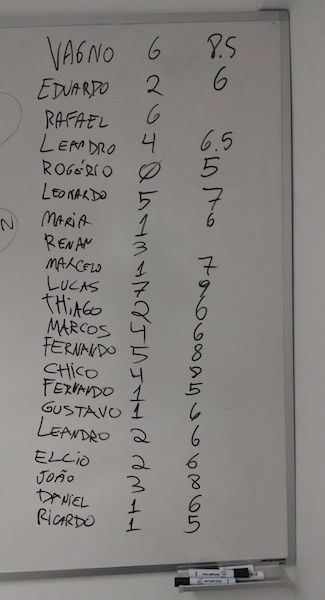 VAGNO 6 8.5
EDUARDO 2 6
RAFAEL 6
LEANDRO 4 6.5
ROGÉRIO 0 5
LEONARDO 5 7
MARIA 1 6
RENAN 3
MARCELO 1 7
LUCAS 7 9
THIAGO 2 6
MARCOS 4 6
FERNANDO 5 8
CHICO 4 8
FERNANDO 1 5
GUSTAVO 1 6
LEANDRO 2 6
ELCIO 2 6
JOÃO 3 8
DANIEL 1 6
RICARDO 1 5